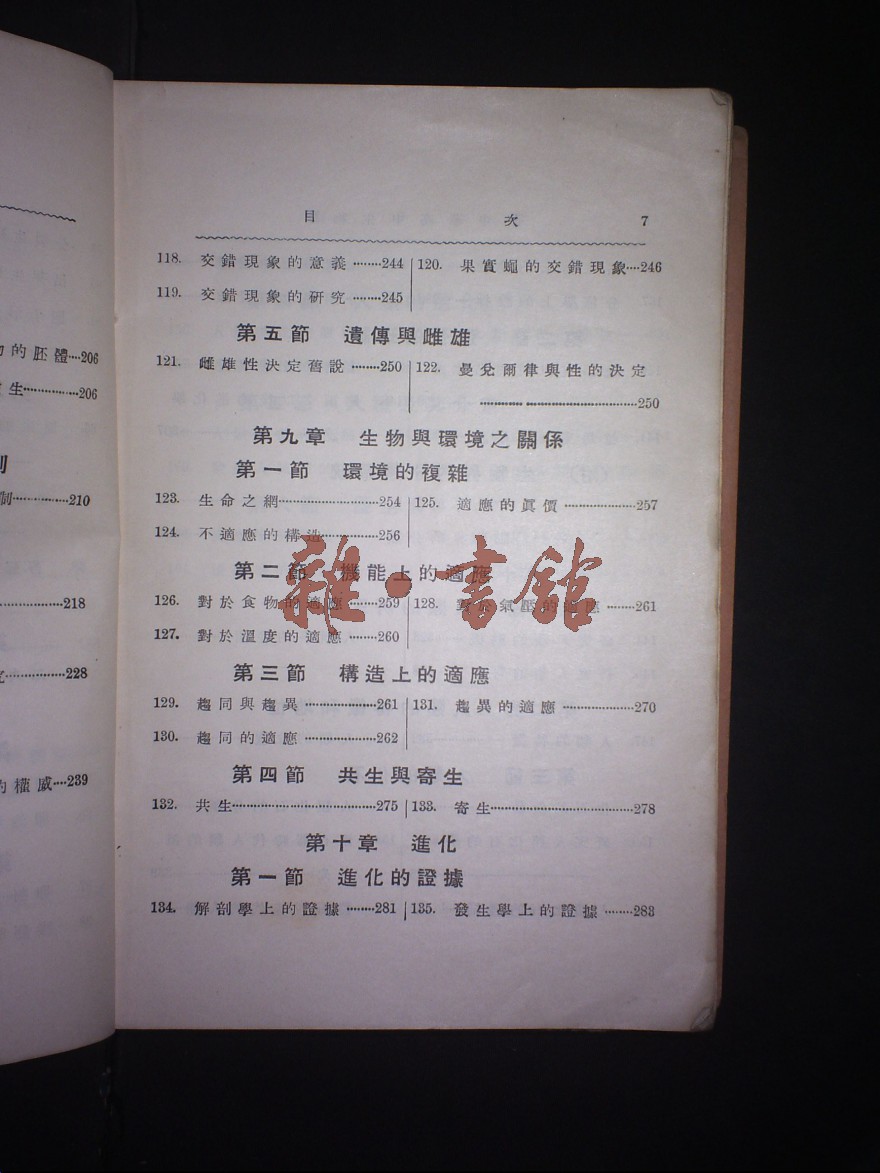 目 次 7
118. 交錯現象的意義………244
119. 交錯現象的研究………245
120. 果實蠅的交錯現象…246
第五節 遺傳與雌雄
121. 雌雄性決定舊說………250
122. 曼兌爾律與性的決定
………………………250
第九章 生物與環境之關係
第一節 環境的複雜
123. 生命之網………………254
124. 不適應的構造…………256
125. 適應的眞價……………257
第二節 機能上的適應
126. 對於食物的適應………259
127. 對於溫度的適應………260
128. 對於氣壓的適應………261
第三節 構造上的適應
129. 趨同與趨異……………261
130. 趨同的適應……………262
131. 趨異的適應……………270
第四節 共生與寄生
132. 共生……………………275
133. 寄生……………………278
第十章 進化
第一節 進化的證據
134. 解剖學上的證據………281
135. 發生學上的證據………283
的胚體…206
生……………206
制……………210
……………218
……………228
的權威…239
雜·書館